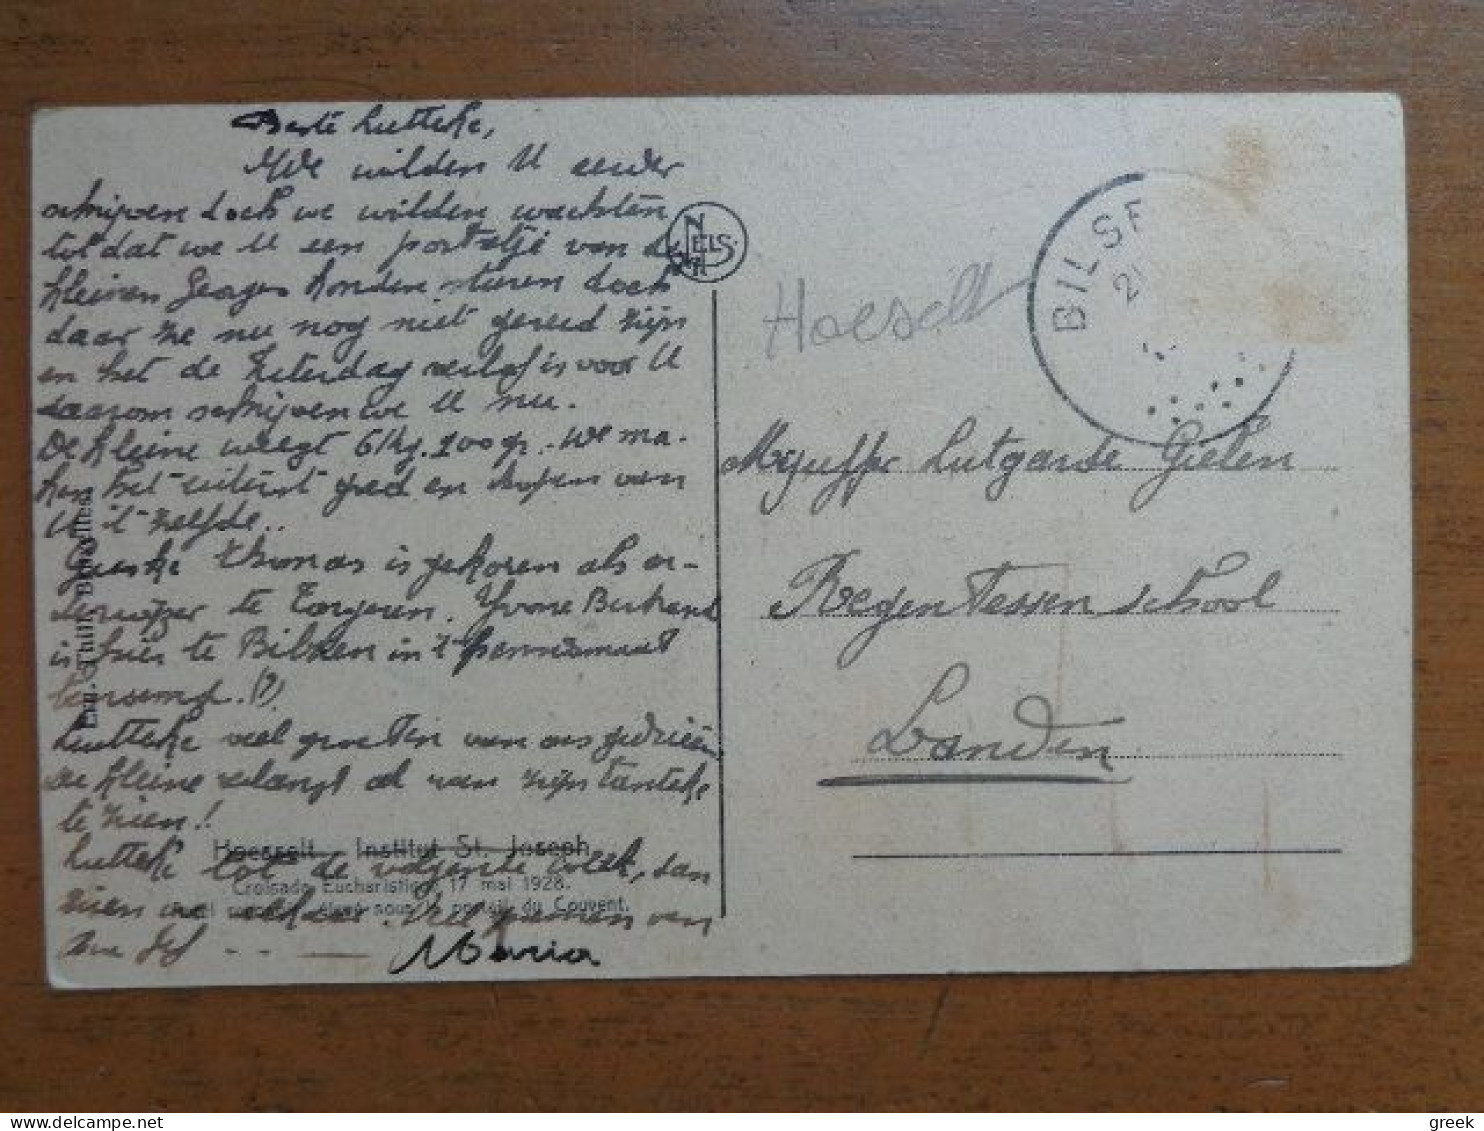 Beste Lutteke,
We wilden U eerder
schrijven doch we wilden wachten
tot dat we U een portretje van de
kleinen Georges konden sturen doch
daar ze nu nog niet gereed zijn
en het de Zaterdag verlof is voor U
daarom schrijven we U nu.
De kleine weegt 6 kg. 200 gr. - We ma-
ken het uiterst goed en hopen van
U 't zelfde..
Thomas is gekoren als on-
derwijzer te Yvonne Bertrand
is hier te Bilzen in 't
(?)
Lutteke veel groeten van ons gedrieën
de kleine verlangt al van zijn tanteke
te zien!
Lutteke tot de volgende week, dan
zien we elkaar. Veel zoenen van
Maria
Hoesselt - Institut St. Joseph
Croisade Eucharistique, 17 mai 1928.
sous le portail du Couvent.
Ern. Thill, Bruxelles
NELS
Hoesselt
BILSE
21
Mejuffr Lutgarde Gielen
Regentessenschool
Landen
greek
Delcampe.net